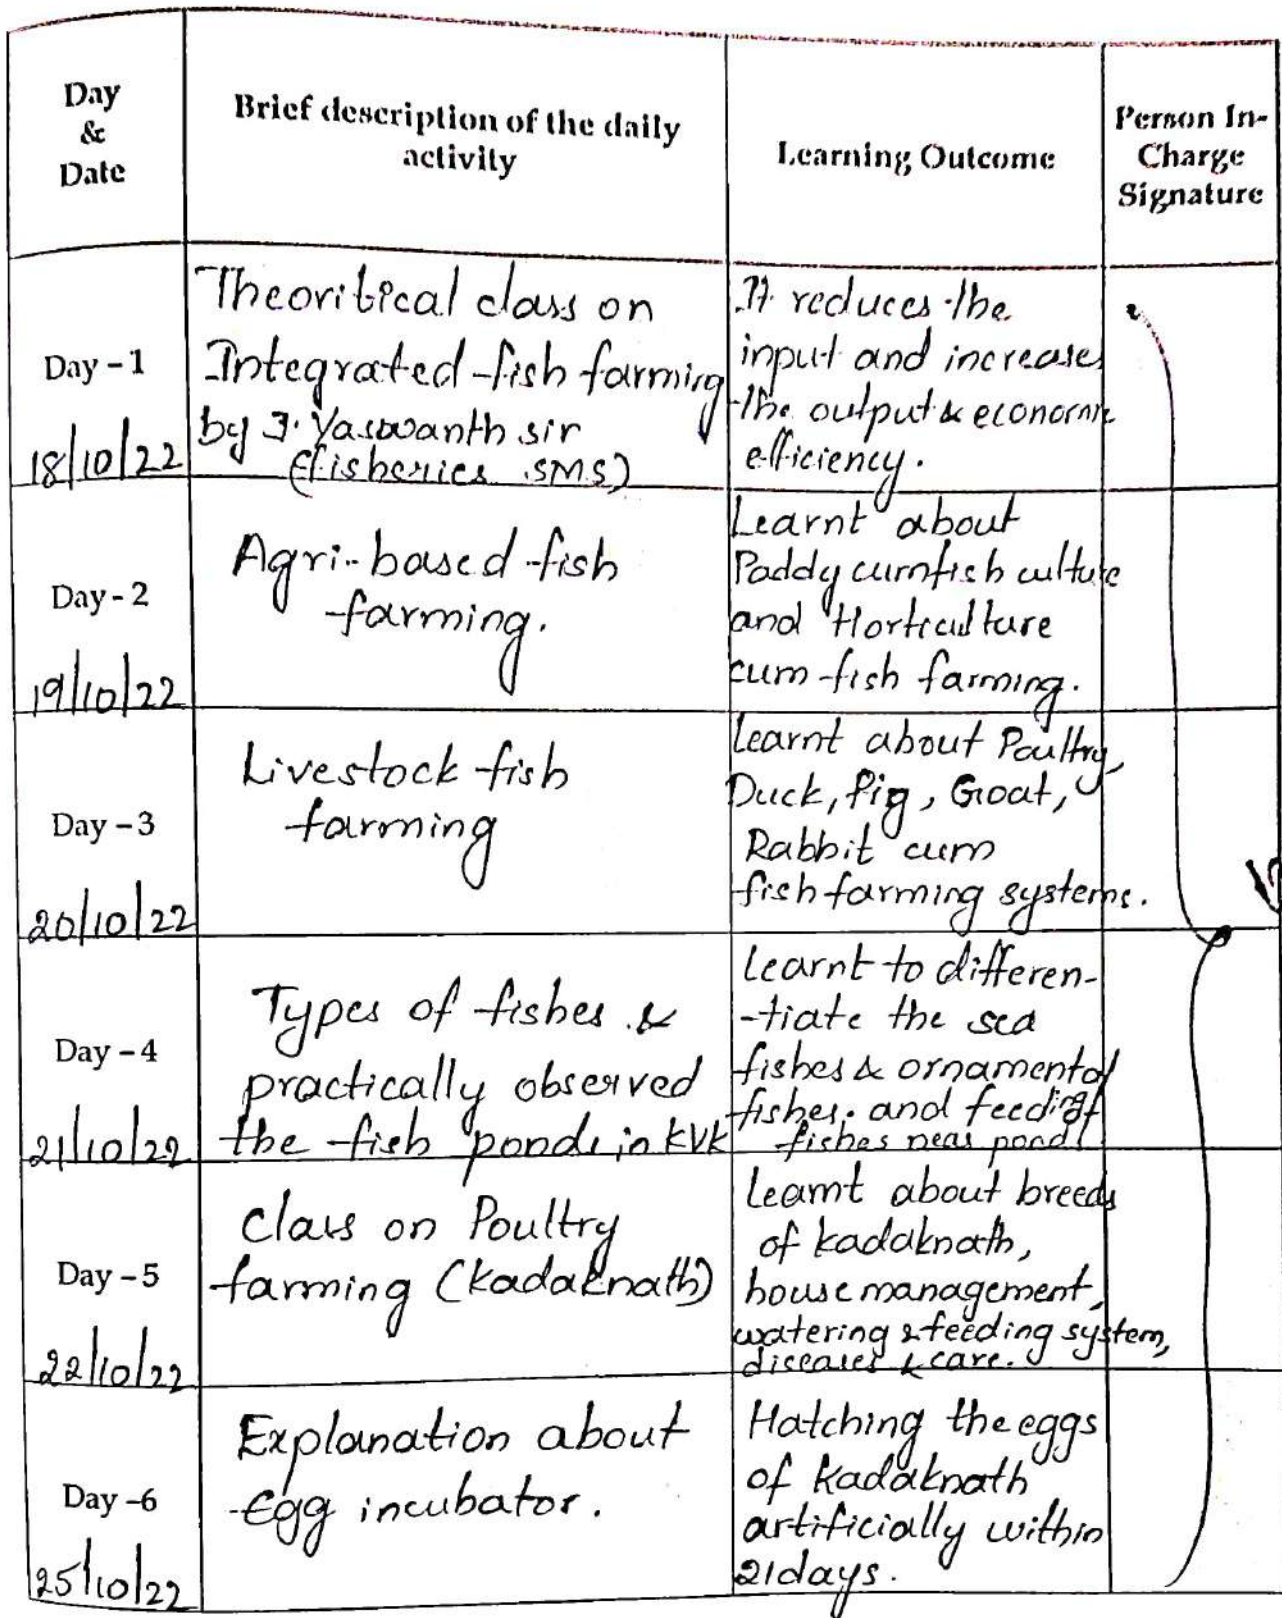 Day
&
Date
Brief description of the daily
activity
Learning Outcome
Person In-
Charge
Signature
Day - 1
18/10/22
Theoritical class on
Integrated fish farming
by J. Yaswanth sir
(fisheries SMS)
It reduces the
input and increases
the output & economic
efficiency.
Day - 2
19/10/22
Agri-based fish
farming.
Learnt about
Paddy cumfish culture
and Horticulture
cum fish farming.
Day - 3
20/10/22
Livestock fish
farming
Learnt about Poultry,
Duck, Pig, Goat,
Rabbit cum
fish farming systems.
Day - 4
21/10/22
Types of fishes &
practically observed
the fish ponds in KVK
Learnt to differen-
-tiate the sea
fishes & ornamental
fishes. and feeding of
fishes near pond
Day - 5
22/10/22
Class on Poultry
farming (Kadaknath)
Learnt about breeds
of kadaknath,
house management,
watering & feeding system,
diseases & care.
Day -6
25/10/22
Explanation about
Egg incubator.
Hatching the eggs
of Kadaknath
artificially within
21days.